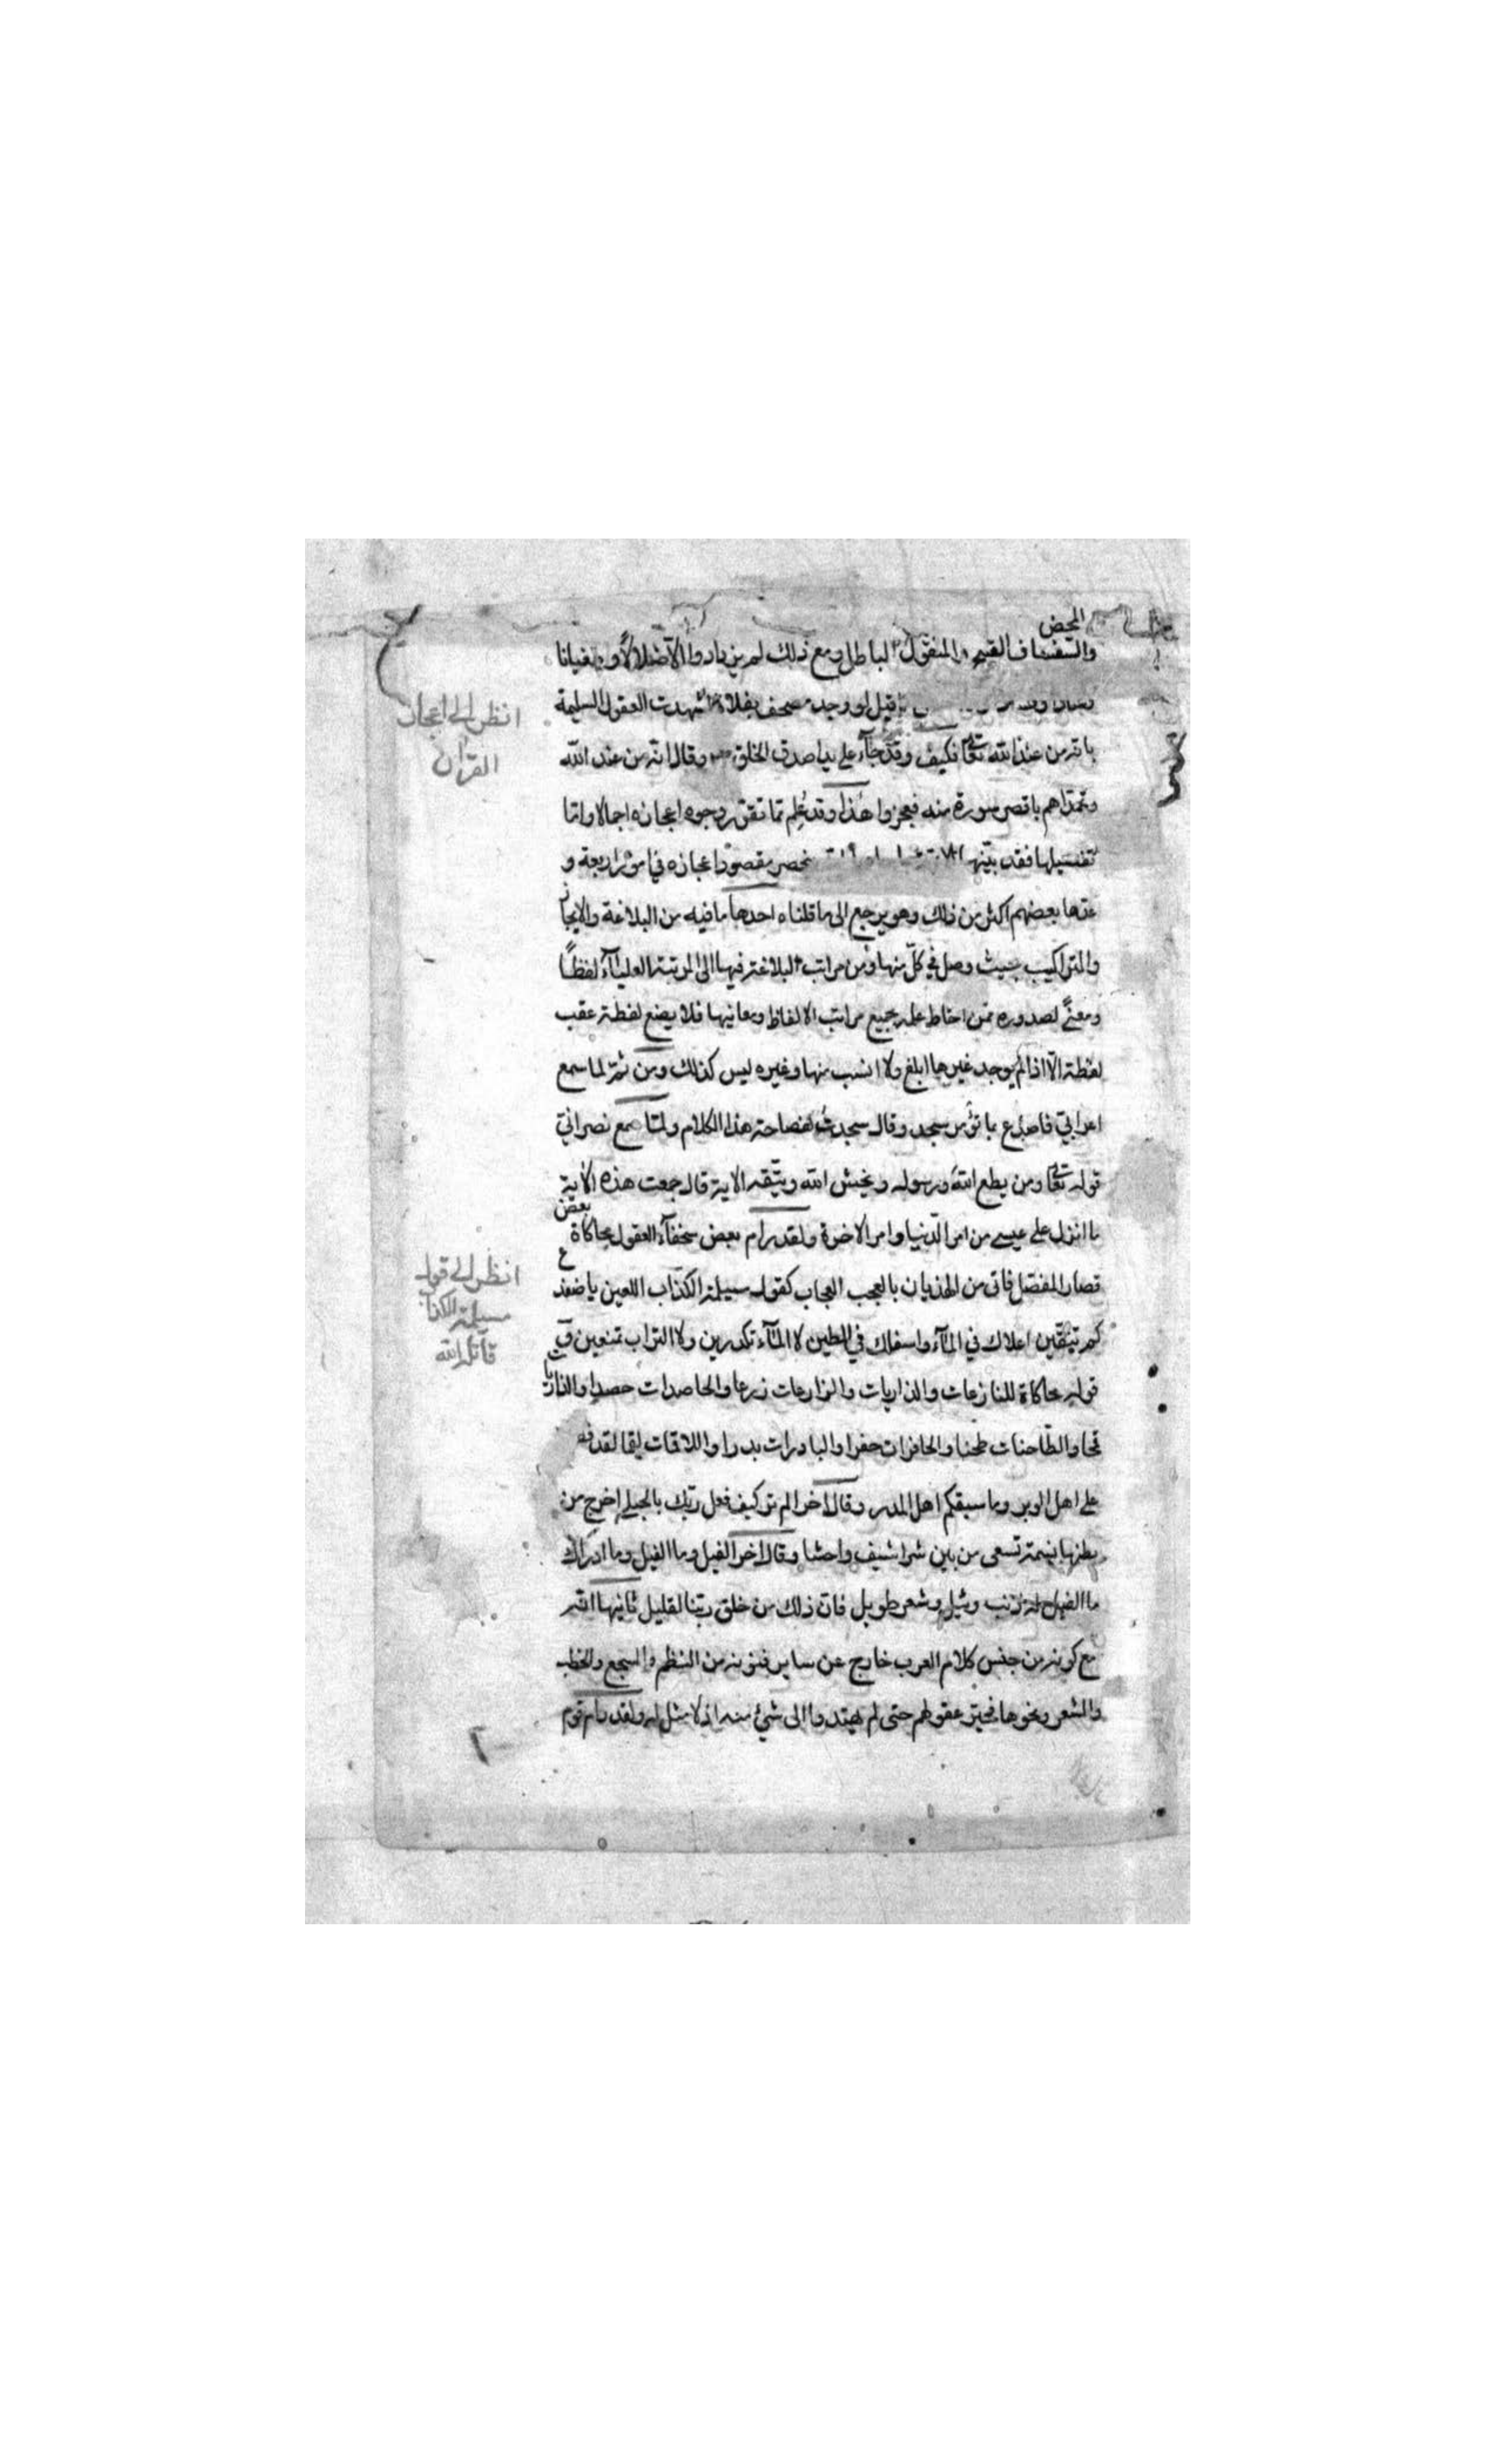 المحض
والسفساف القبيح والمنقول الباطل ومع ذلك لم يزيدادوا الا ضلالا وطغيانا
قيل لو وجد مصحف بفلاة لشهدت العقول السليمة
بانه من عند الله تعالى فكيف وقد جاء على يد اصدق الخلق وقال انه من عند الله
وتحداهم باقصر سورة منه فعجزوا هذا وقد علم مما تقرر وجوه اعجازه اجمالا واما
تفصيلها فقد بينها ينحصر مقصود اعجازه في امور اربعة و
عدها بعضهم اكثر من ذلك وهو يرجع الى ما قلناه احدها ما فيه من البلاغة والايجاز
والتراكيب بحيث وصل في كل منها ومن مراتب البلاغة فيها الى المرتبة العلياء لفظاً
ومعنىً لصدوره ممن احاط علمه بجميع مراتب الالفاظ ومعانيها فلا يضع لفظة عقب
لفظة الا اذا لم يوجد غيرها ابلغ ولا انسب منها وغيره ليس كذلك ومن ثم لما سمع
اعرابي فاصدع بما تؤمر سجد وقال سجدت لفصاحة هذا الكلام ولما سمع نصراني
قوله تعالى ومن يطع الله ورسوله ويخش الله ويتقه الاية قال جمعت هذه الاية
ما انزل على عيسى من امر الدنيا وامر الاخرة ولقد رام بعض سخفاء العقول محاكاة بعض
قصار المفصل فاتى من الهذيان بالعجب العجاب كقول مسيلمة الكذاب اللعين يا ضفدع
كم تنقين اعلاك في الماء واسفلك في الطين لا الماء تكدرين ولا التراب تمنعين و
قوله محاكاة للنازعات والذاريات والزارعات زرعا والحاصدات حصدا والذاريات
قمحا والطاحنات طحنا والحافرات حفرا والبادرات بدرا واللاقمات لقما لقد
على اهل الوبر وما سبقكم اهل المدر وقال اخر الم تر كيف فعل ربك بالحبلى اخرج من
بطنها نسمة تسعى من بين شراشيف واحشا وقال اخر الفيل وما الفيل وما ادراك
ما الفيل له ذنب وثيل وشعر طويل فان ذلك من خلق ربنا لقليل ثانيها انه
مع كونه من جنس كلام العرب خارج عن ساير فنونه من النظم والسجع والخطب
والشعر ونحوها فحير عقولهم حتى لم يهتدوا الى شئ منه اذ لا مثل له ولقد رام قوم
انظر الى اعجاز
القران
انظر الى قول
مسيلمة الكذاب
قاتله الله